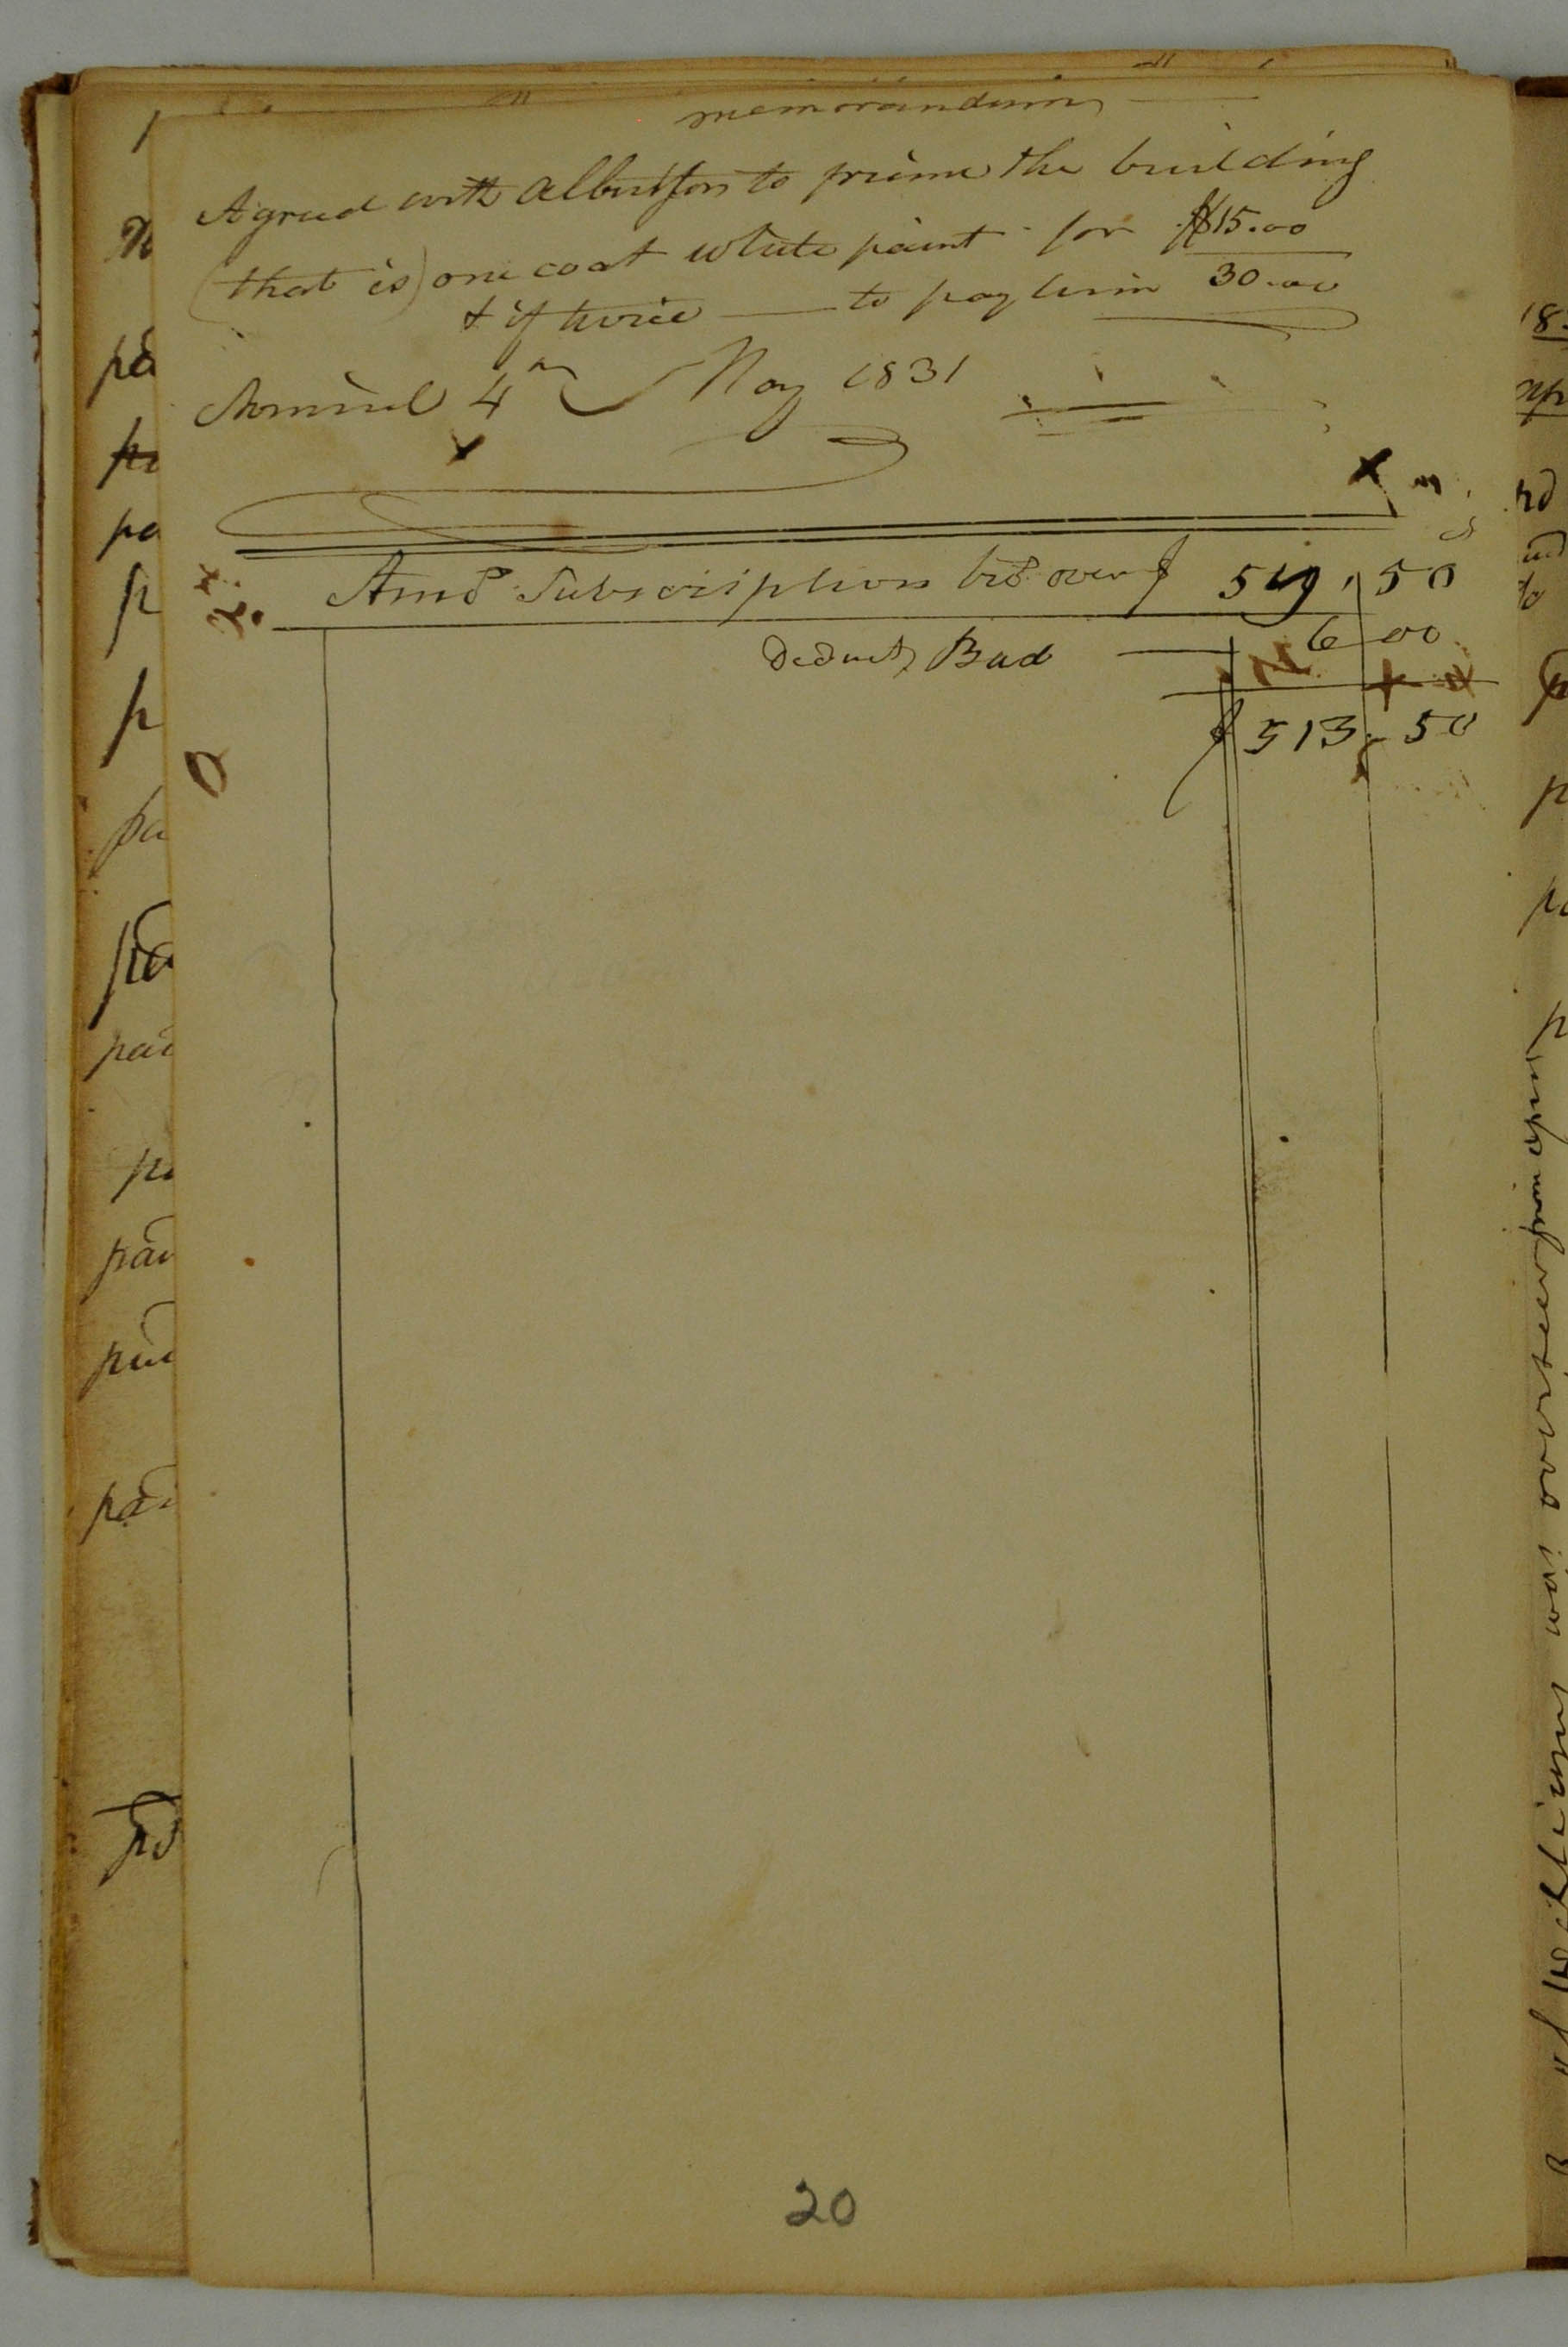 memorandum
Agreed with Albertson to prime the building
(that is) one coat white paint for $15.00
& if twice — to pay him 30.00
4th May 1831
Amo Subscription bro over $ 519,50
Deduct Bad — 6 00
$ 513.50
20